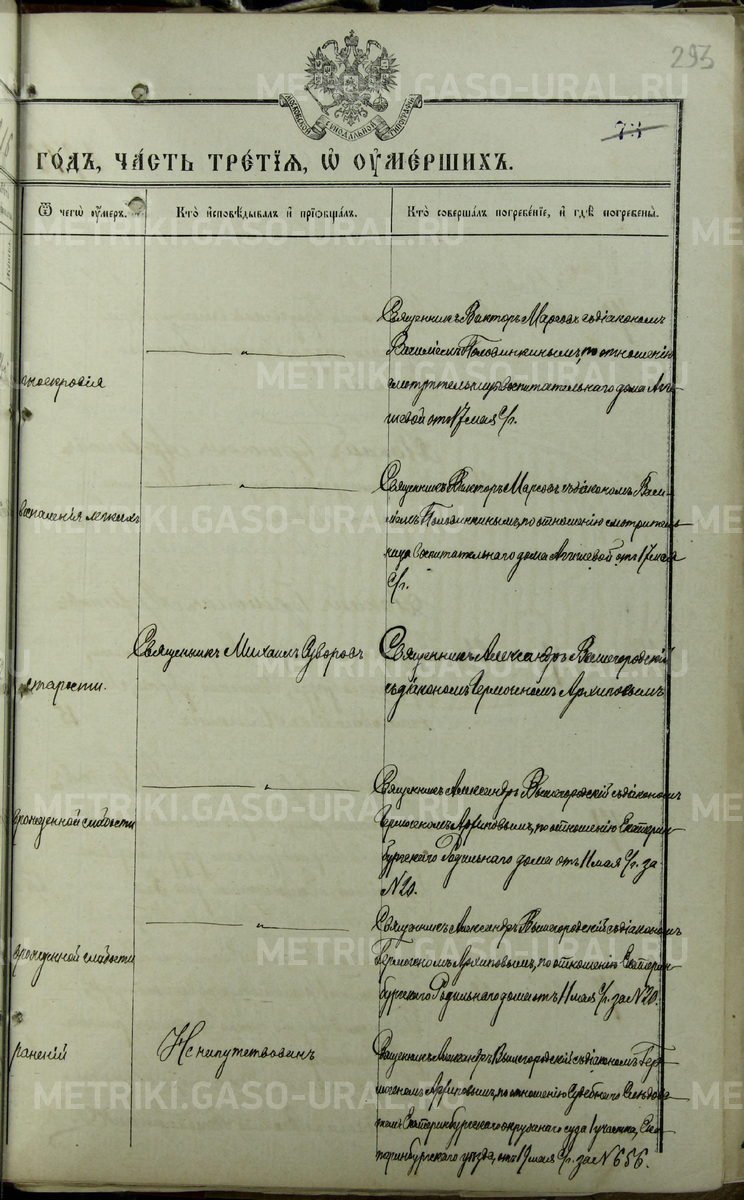 293
METRIKI.GASO-URAL.RU
МОСКОВСКОЙ СѴНОДАЛЬНОЙ ТИПОГРАФІИ
74
ГО́ДЪ, ЧА́СТЬ ТРЕ́ТІѦ, Ѽ ОУ҆МЕ́РШИХЪ.
Ѿ чегѡ̀ оу҆́меръ.
Кто̀ и҆сповѣ́дывалъ и҆ пріѡбща́лъ.
Кто̀ соверша́лъ погребе́ніе, и҆ гдѣ̀ погребены̀.
METRIKI.GASO-URAL.RU
гноекровія
— „ —
Священникъ Викторъ Марсовъ съ діакономъ
Василіемъ Половинкинымъ, по отношенію
смотрительницы Воспитательнаго дома Аги-
шевой отъ 17 мая с/г.
METRIKI.GASO-URAL.RU
воспаленія легкихъ
— „ —
Священникъ Викторъ Марсовъ съ діакономъ Васи-
ліемъ Половинкинымъ, по отношенію смотритель-
ницы Воспитательнаго дома Агишевой отъ 17 мая
с/г.
METRIKI.GASO-URAL.RU
старости.
Священникъ Михаилъ Суворовъ
Священникъ Александръ Вышегородскій
съ діакономъ Гермогеномъ Архиповымъ
METRIKI.GASO-URAL.RU
врожденной слабости
— „ —
Священникъ Александръ Вышегородскій съ діакономъ
Гермогеномъ Архиповымъ, по отношенію Екатерин-
бургскаго Родильнаго дома отъ 11 мая с/г. за
№20.
METRIKI.GASO-URAL.RU
врожденной слабости
— „ —
Священникъ Александръ Вышегородскій съ діакономъ
Гермогеномъ Архиповымъ, по отношенію Екатерин-
бургскаго Родильнаго дома отъ 11 мая с/г. за №20.
METRIKI.GASO-URAL.RU
раненій
Не напутствованъ
Священникъ Александръ Вышегородскій съ діакономъ Гер-
могеномъ Архиповымъ, по отношенію Судебнаго Слѣдова-
теля Екатеринбургскаго окружнаго суда 1 участка, Ека-
теринбургскаго уѣзда, отъ 17 мая с/г. за №656.
METRIKI.GASO-URAL.RU